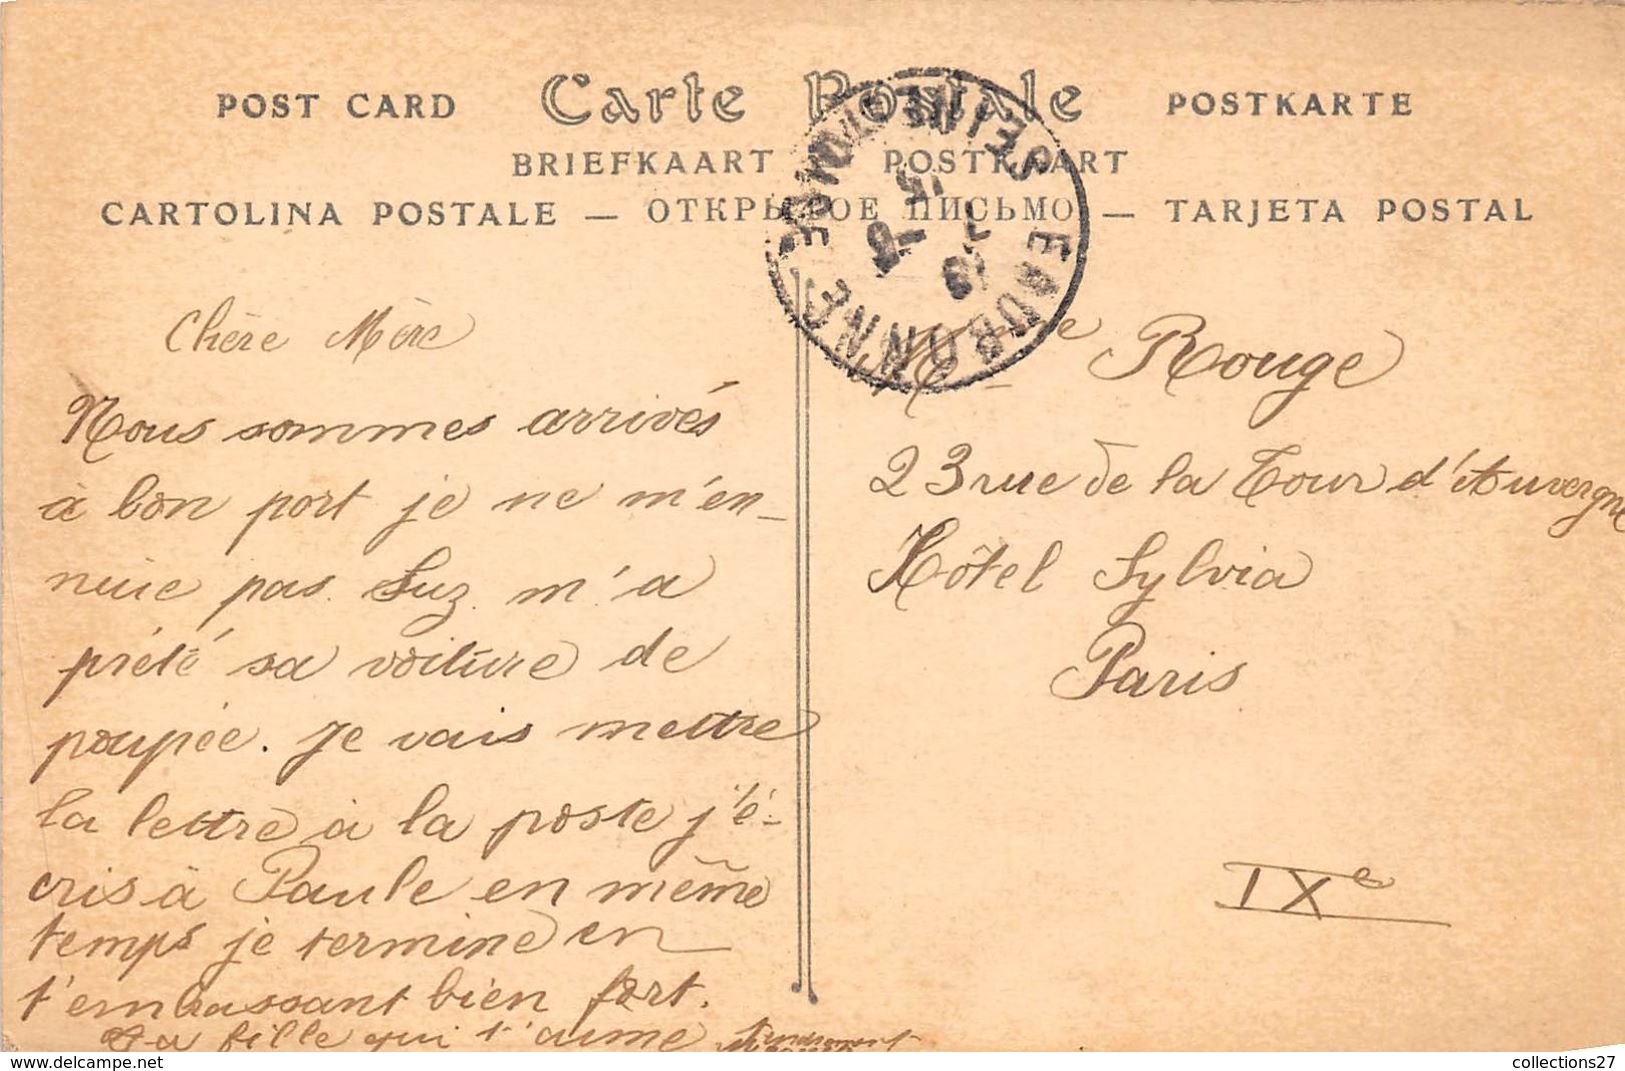 POST CARD Carte Postale POSTKARTE
BRIEFKAART POSTKAART
CARTOLINA POSTALE — ОТКРЫТОЕ ПИСЬМО — TARJETA POSTAL
EAUBONNE
Chère Mère
Nous sommes arrivés
à bon port je ne m'en-
nuie pas. Suz. m'a
prêté sa voiture de
poupée. Je vais mettre
la lettre à la poste j'é-
cris à Paule en même
temps je termine en
t'embrassant bien fort.
Ta fille qui t'aime tendrement
Mme Rouge
23 rue de la Tour d'Auvergne
Hôtel Sylvia
Paris
IXe
collections27